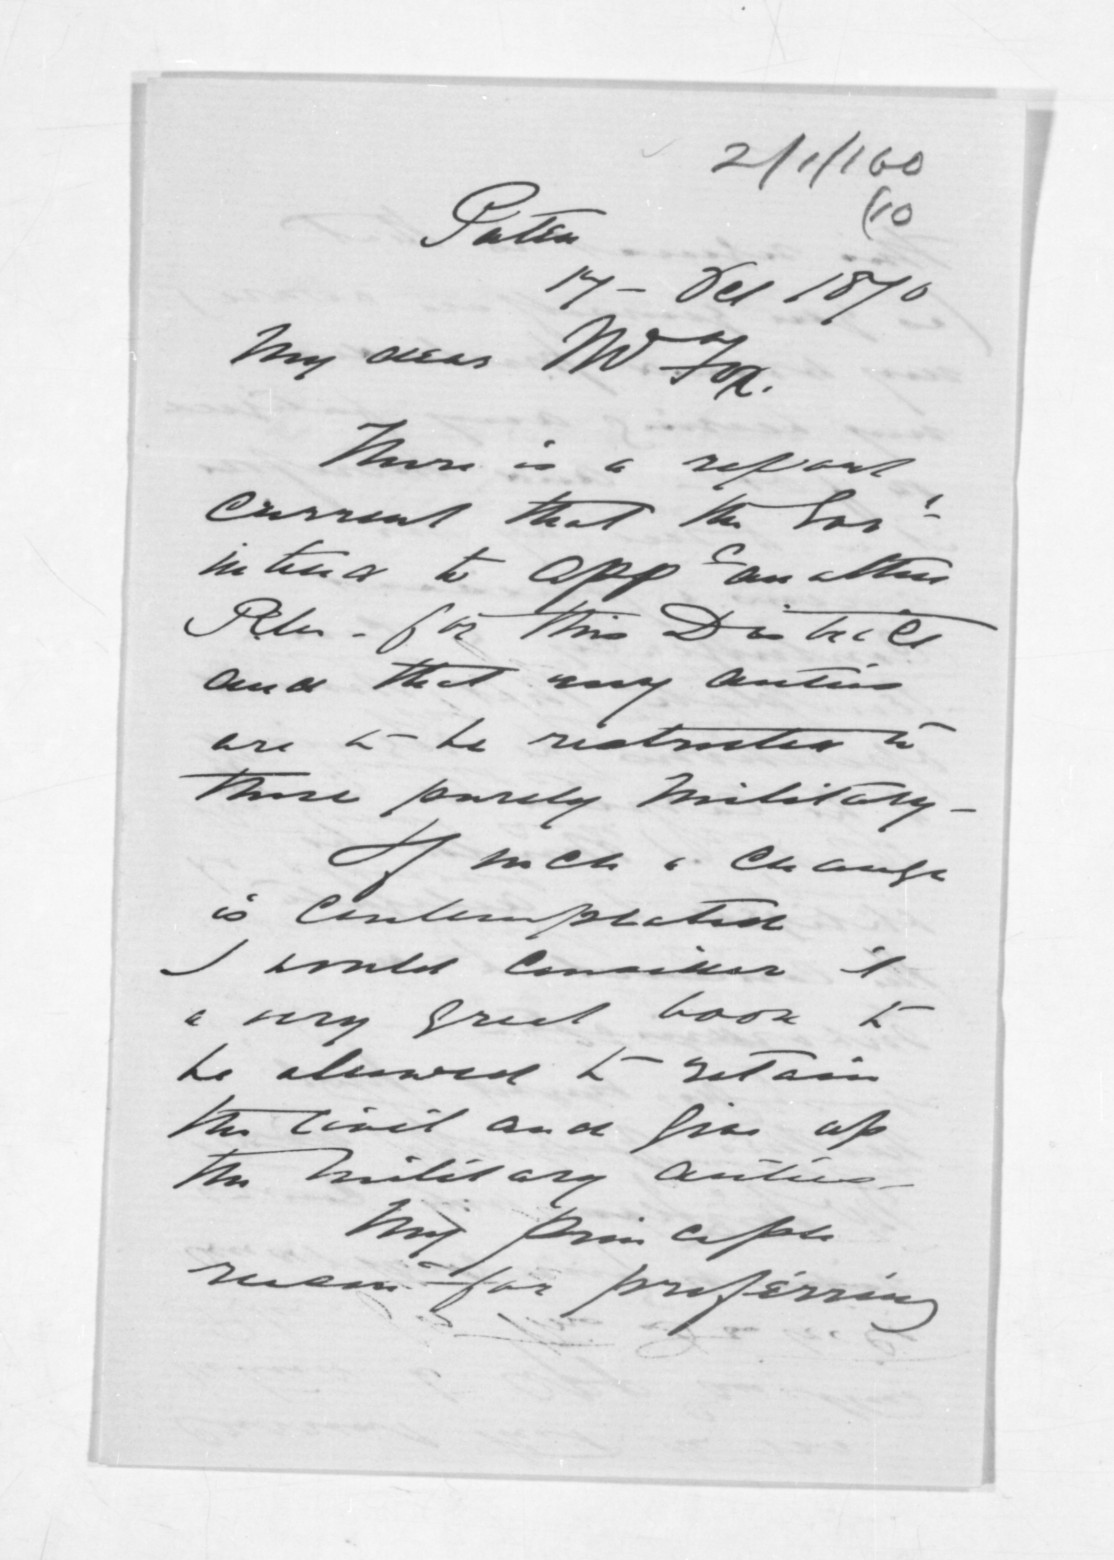 2/1/100
(10
Patea
17 - Oct 1870
My dear Mr Fox.
There is a report
current that the Govt.
intend to appt another
R.M. for this District
and that my duties
are to be restricted to
those purely Military -
If such a change
is contemplated
I would consider it
a very great boon to
be allowed to retain
the Civil and give up
the Military duties -
My principle
reason for preferring